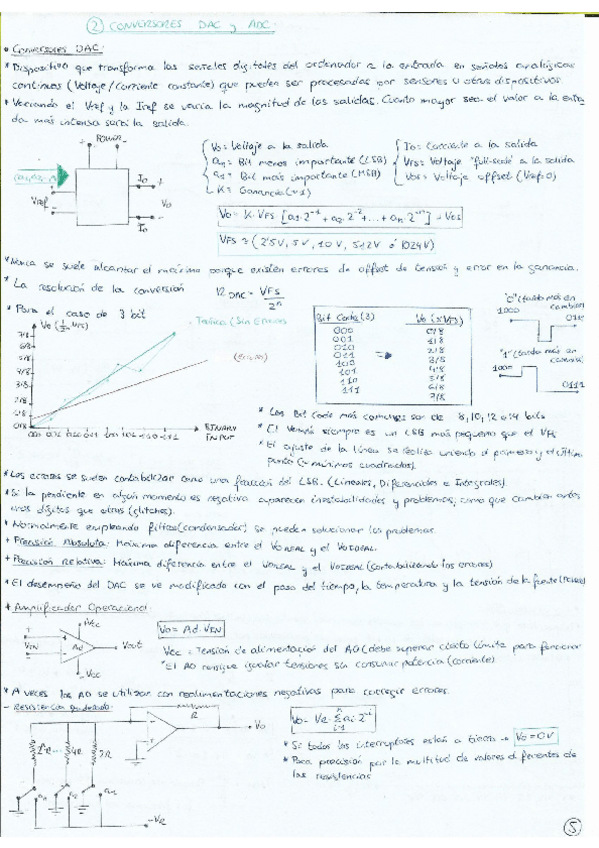 ② CONVERSORES DAC y ADC:
• CONVERSORES DAC:
* Dispositivo que transforma las señales digitales del ordenador a la entrada en señales analógicas
continuas (Voltaje/corriente constante) que pueden ser procesadas por sensores u otros dispositivos.
* Variando el Vref y la Iref se varía la magnitud de las salidas. Cuanto mayor sea el valor a la entra
da más intensa será la salida.
POWER
+ -
Vref
Io
Vo
Io
Vo = Voltaje a la salida
an = Bit menos importante (LSB)
a1 = Bit más importante (MSB)
K = Ganancia (≈1)
Io = Corriente a la salida
VFS = Voltaje "full-scale" a la salida
Vos = Voltaje offset
Vo = K·VFS [a1·2⁻¹ + a2·2⁻² + ... + an·2⁻ⁿ] + Vos
VFS ≈ (2'5V, 5V, 10V, 5'12V ó 10'24V)
* Nunca se suele alcanzar el máximo porque existen errores de offset de tensión y error en la ganancia.
* La resolución de la conversión RDAC = VFS/2ⁿ
* Para el caso de 3 bit
Teórica (Sin Errores
(errores)
BINARY
INPUT
Bit Conta (3) Vo (xVFS)
000 0/8
001 1/8
010 2/8
011 3/8
100 4/8
101 5/8
110 6/8
111 7/8
"0" (tarda más en
cambiar)
1000
0111
"1" (tarda más en
cambiar)
1000
0111
* Los Bit Code más comunes son de 8, 10, 12 o 14 bits
* El Vomáx siempre es un LSB más pequeño que el VFS
* El ajuste de la línea se realiza uniendo el primero y el último
punto (o mínimos cuadrados).
* Los errores se suelen contabilizar como una fracción del LSB. (Lineales, Diferenciales e Integrales).
* Si la pendiente en algún momento es negativa aparecen inestabilidades y problemas, como que cambien antes
unos dígitos que otros (glitches).
* Normalmente empleando filtros (condensador) se pueden solucionar los problemas.
+ Precisión Absoluta: Máxima diferencia entre el VOREAL y el VOIDEAL.
+ Precisión Relativa: Máxima diferencia entre el VOREAL y el VOIDEAL (Contabilizando los errores)
* El desempeño del DAC se ve modificado con el paso del tiempo, la temperatura y la tensión de la fuente (Power)
+ Amplificador Operacional:
+Vcc
VIN
Ad
Vout
-Vcc
Vo = Ad·VIN
Vcc = Tensión de alimentación del AO (debe superar cierto límite para funcionar
* El AO consigue igualar tensiones sin consumir potencia (corriente)
* A veces los AO se utilizan con realimentaciones negativas para corregir errores.
- Resistencia ponderada:
R
Vo
2ⁿR 4R 2R
an a2 a1
-VR
Vo = VR·Σ ai·2⁻ⁱ
* Si todos los interruptores están a tierra → Vo = 0V
* Poca precisión por la multitud de valores diferentes de
las resistencias
⑤